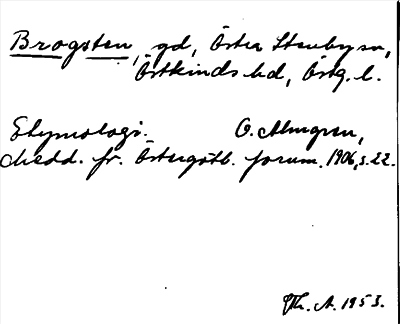 Brogsten, gd, Östra Stenby sn,
Östkinds hd, Östg. l.
Etymologi. O. Almgren,
Medd. fr. Östergötl. fornm. 1906, s. 22.
Th. A. 1953.